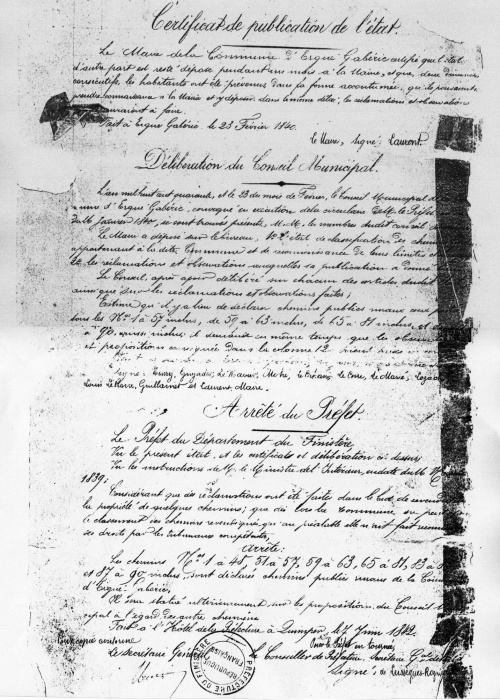 Certificat de publication de l'état.
Le Maire de la Commune d'Ergué Gabéric certifie que l'état
d'autre part est resté déposé pendant un mois à la Mairie, et que, deux dimanches
consécutifs, les habitants ont été prévenus dans la forme accoutumée, qu'ils pouvaient
prendre connaissance à la Mairie et y déposer dans le même délai, les réclamations et observations
auraient à faire.
Fait à Ergué Gabéric le 23 Février 1840.
le Maire, Signé: Laurent.
Délibération du Conseil Municipal.
L'an mil huit cent quarante, et le 23 du mois de Février, le Conseil Municipal de
d'Ergué Gabéric, convoqué en exécution de la circulaire de M. le Préfet
Janvier 1840, se sont trouvés présents, M. M. les membres dudit conseil
Le Maire a déposé sur le bureau, 1º l'état de classification des chemins
appartenant à la dite Commune et de reconnaissance de leurs limites
les réclamations et observations auxquelles sa publication a donné
Le Conseil, après avoir délibéré sur chacun des articles dudit
ainsi que sur les réclamations et observations faites;
Estime qu'il y a lieu de déclarer chemins publics ruraux ceux
sous les Nos 1 à 57 inclus, de 59 à 63 inclus, de 65 à 81 inclus, et
à 90, aussi inclus, il demande en même temps que les observations
et propositions consignées dans la colonne 12
Louis Le Berre, Guillamet et Laurent, Maire.
Arrêté du Préfet.
Le Préfet du Département du Finistère
Vu le présent état, et les certificats et délibération ci-dessus
Vu les instructions de M. le Ministre de l'Intérieur, en date du
1839;
Considérant que des réclamations ont été faites dans le but de revendiquer
la propriété de quelques chemins; que dès lors la Commune ne peut
le classement des chemins revendiqués, qu'au préalable elle n'ait fait reconnaître
ses droits par les tribunaux compétents;
Arrête:
Les chemins Nos 1 à 48, 51 à 57, 59 à 63, 65 à 81, 83 à
et 87 à 90 inclus, sont déclarés chemins publics ruraux de la Commune
d'Ergué Gabéric.
Il sera statué ultérieurement sur les propositions du Conseil
à l'égard des autres chemins
Fait à l'Hôtel de la Préfecture à Quimper, le 7 Juin 1842.
Pour copie conforme
Pour le Préfet en tournée,
Le Secrétaire Général
Le Conseiller de Préfecture, Secrétaire Gal
Signé:
PREFECTURE DU FINISTERE